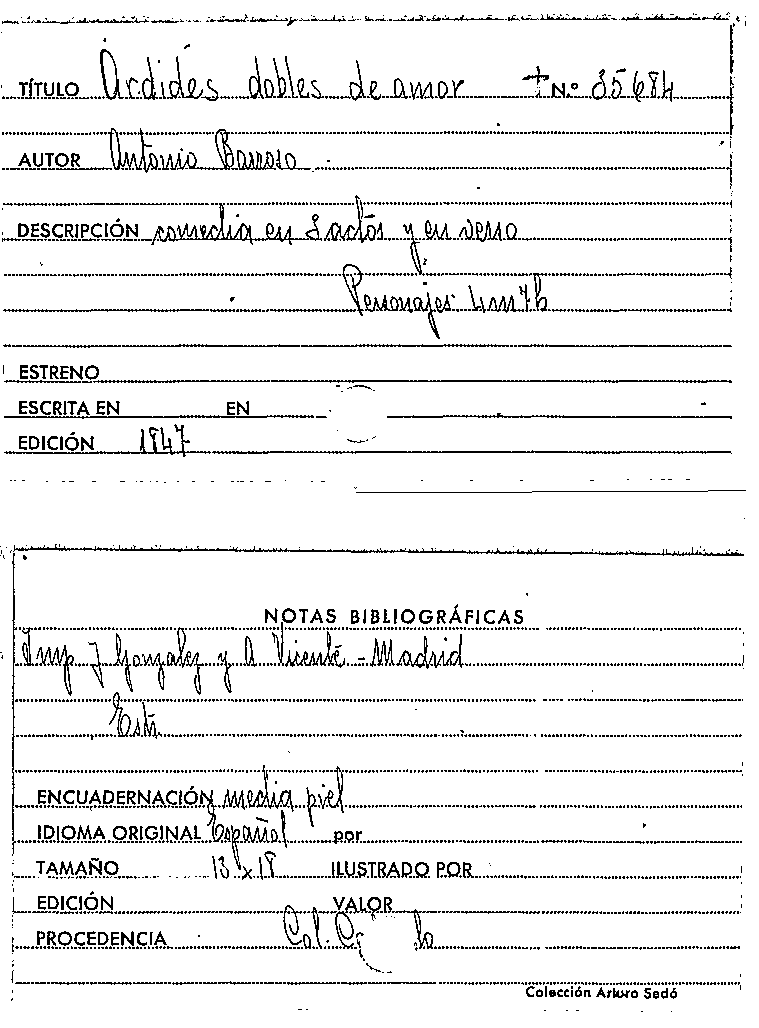 TÍTULO Ardides dobles de amor + N.º 35684
AUTOR Antonio Barroso
DESCRIPCIÓN comedia en 3 actos y en verso
Personajes 4m 7h
ESTRENO
ESCRITA EN EN
EDICIÓN 1847
NOTAS BIBLIOGRÁFICAS
Imp J Gonzalez y A Vicente - Madrid
ENCUADERNACIÓN media piel
IDIOMA ORIGINAL Español por
TAMAÑO 13 x 18 ILUSTRADO POR
EDICIÓN VALOR
PROCEDENCIA Col.
Colección Arturo Sedó